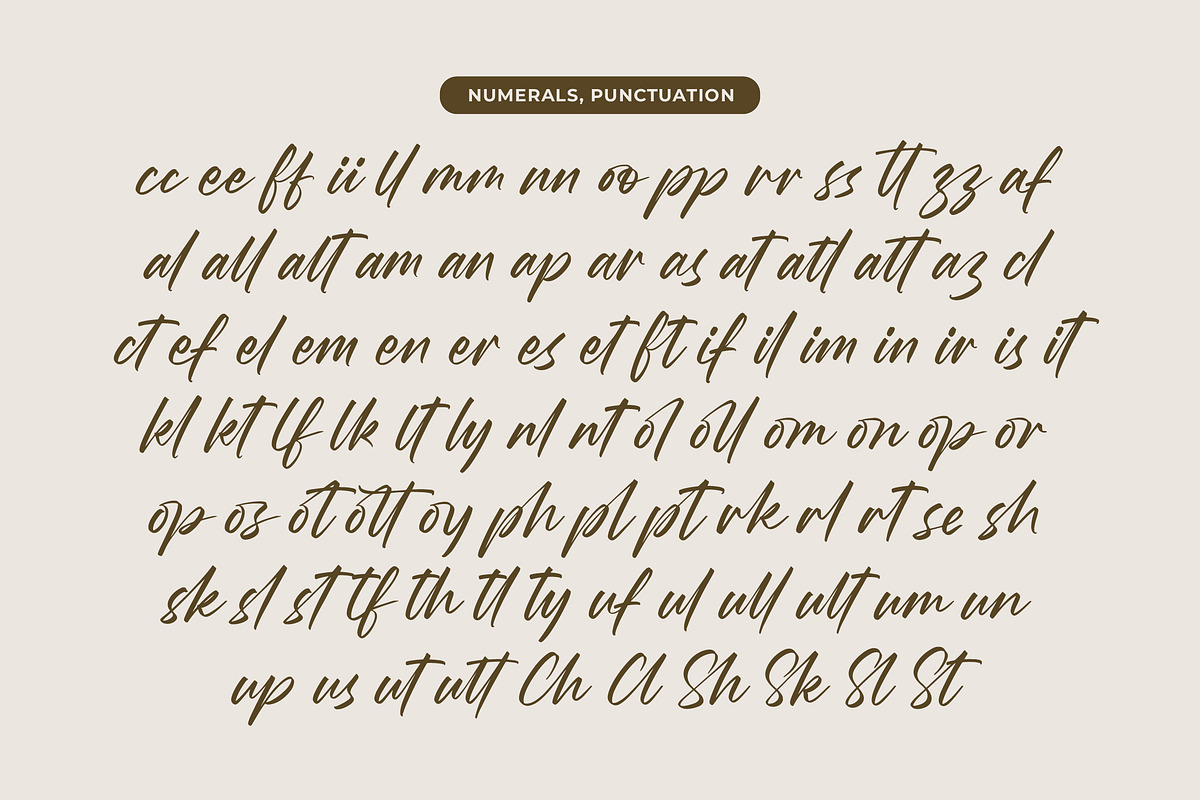 NUMERALS, PUNCTUATION
cc ee ff ii ll mm nn oo pp rr ss tt zz af
al all alt am an ap ar as at atl att az cl
ct ef el em en er es et ft if il im in ir is it
kl kt lf lk lt ly nl nt ol oll om on op or
op os ot ott oy ph pl pt rk rl rt se sh
sk sl st tf th tl ty uf ul ull ult um un
up us ut utt Ch Cl Sh Sk Sl St